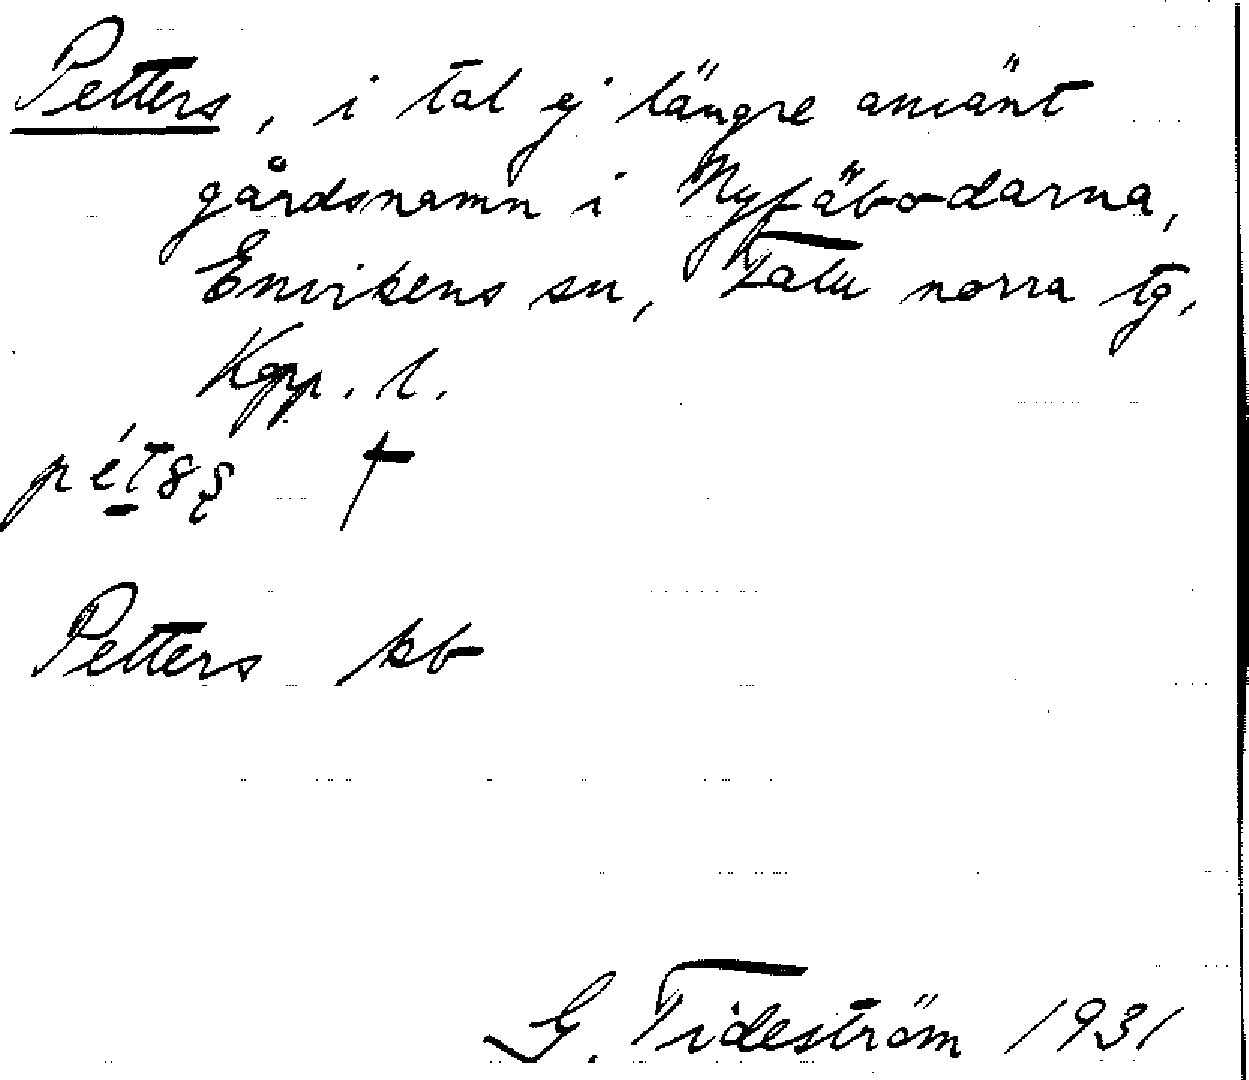 Petters, i tal ej längre använt
gårdsnamn i Nyfäbodarna,
Envikens sn, Falu norra tg,
Kopp. l.
Petters kb
G. Tideström 1931